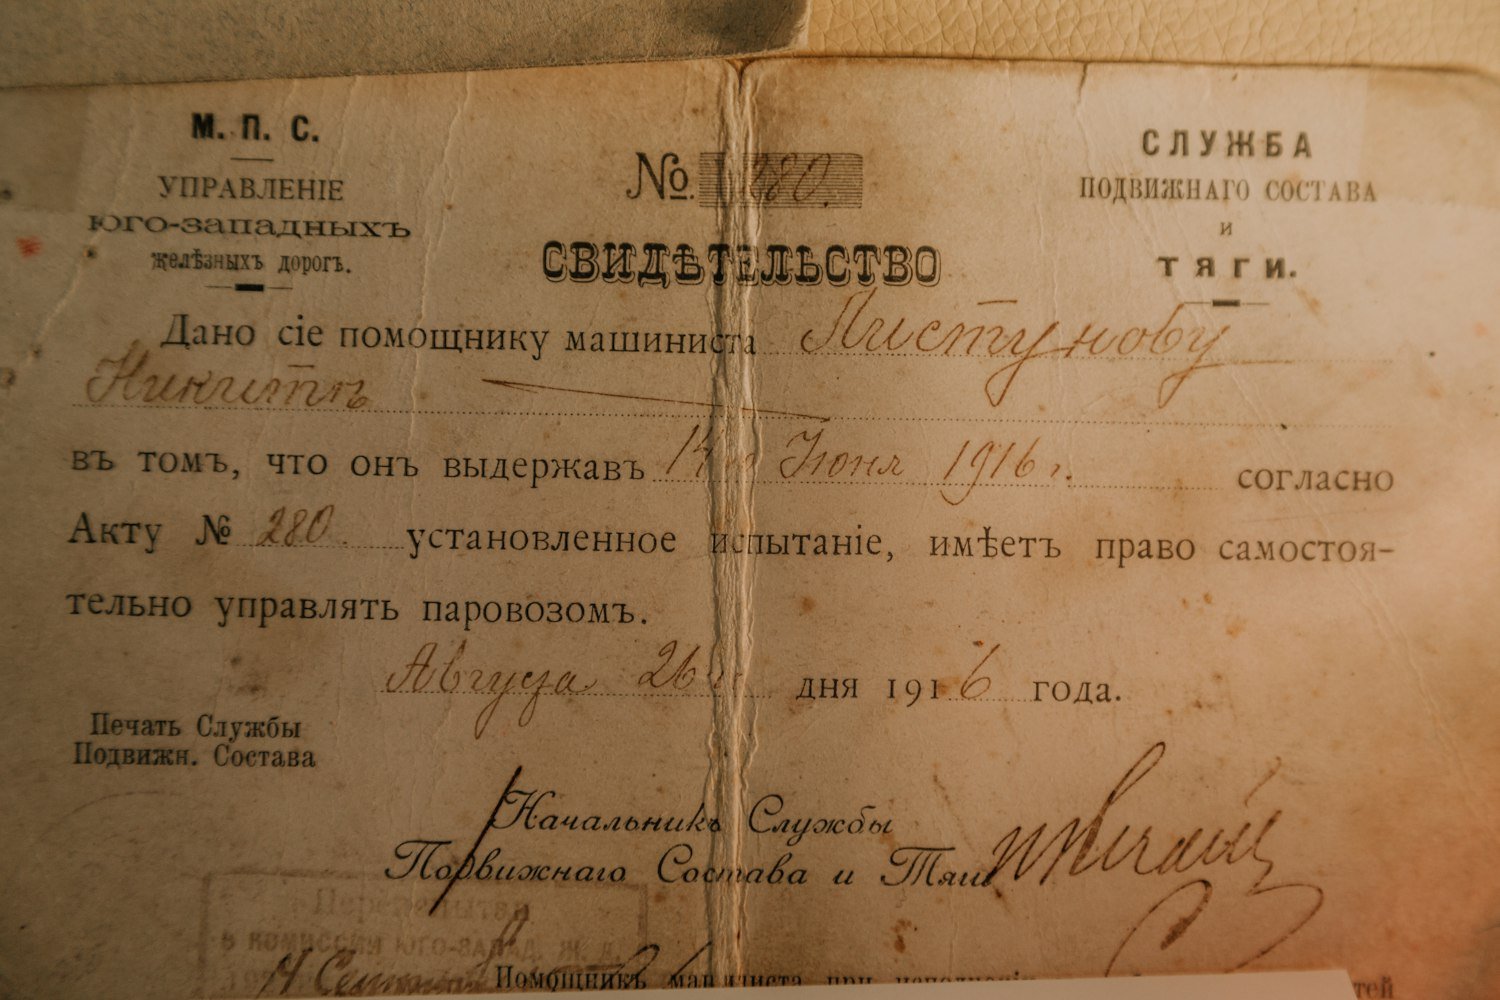 М. П. С.
УПРАВЛЕНІЕ
ЮГО-ЗАПАДНЫХЪ
желѣзныхъ дорогъ.
№ 280.
СВИДѢТЕЛЬСТВО
СЛУЖБА
ПОДВИЖНАГО СОСТАВА
И
ТЯГИ.
Дано сіе помощнику машиниста Листунову
Никитѣ
въ томъ, что онъ выдержавъ 14го Іюня 1916 г. согласно
Акту № 280. установленное испытаніе, имѣетъ право самостоя-
тельно управлять паровозомъ.
Августа 26 дня 1916 года.
Печать Службы
Подвижн. Состава
Начальникъ Службы
Подвижнаго Состава и Тяги
Переиспытан
в комиссии Юго-Запад. ж. д.
14 Сентября
Помощникъ машиниста при исполненіи